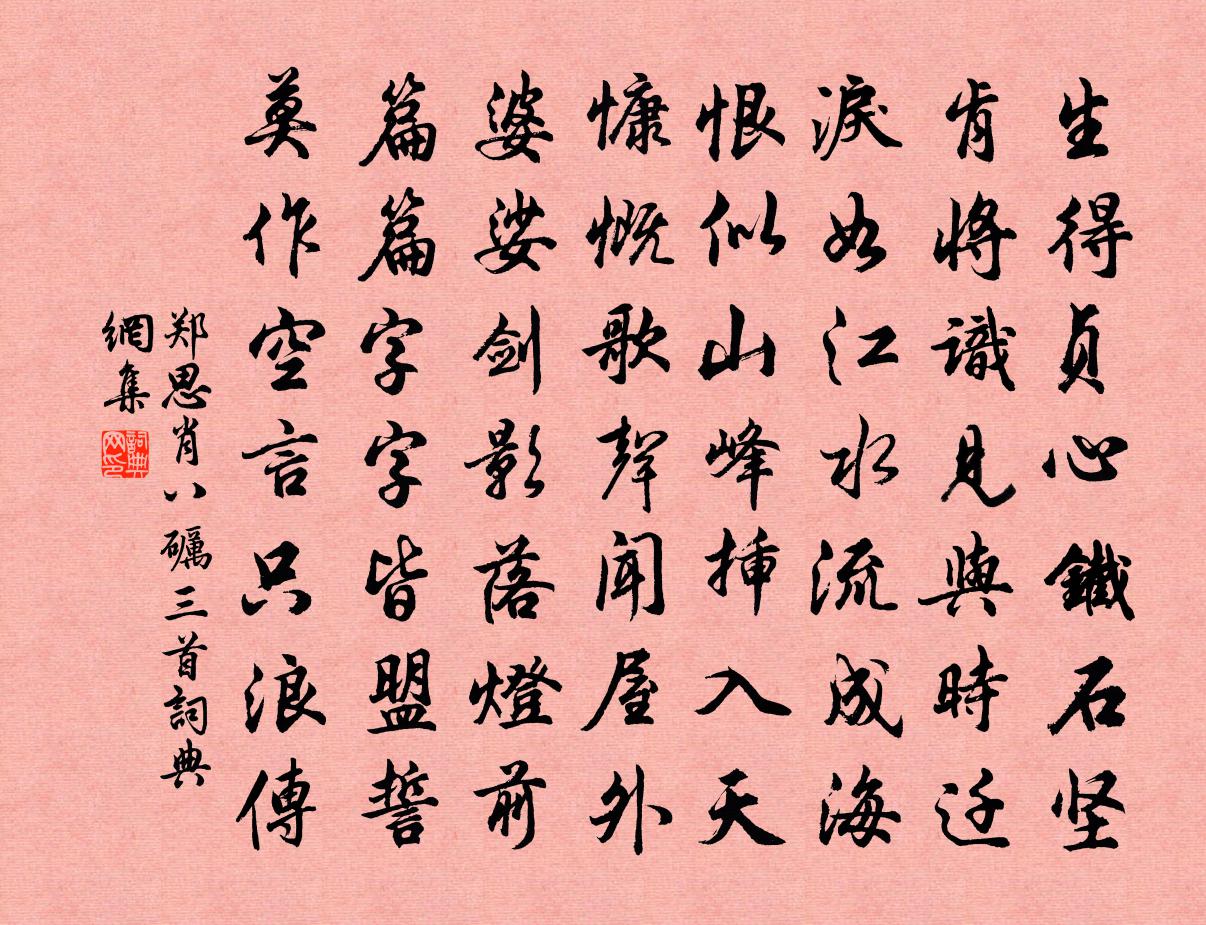 生得貞心鐵石坚
肯将識見與時迁
淚如江水流成海
恨似山峰揷入天
慷慨歌聲聞屋外
婆娑剑影落燈前
篇篇字字皆盟誓
莫作空言只浪傳
郑思肖八礪三首詞典
網集
詞典网印